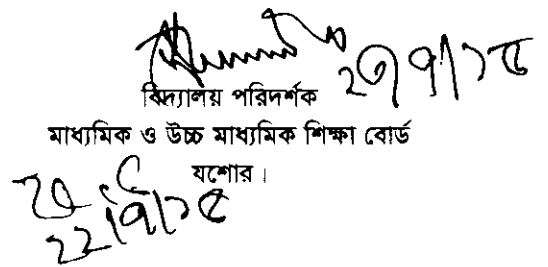 ২৩/৭/১৫
বিদ্যালয় পরিদর্শক
মাধ্যমিক ও উচ্চ মাধ্যমিক শিক্ষা বোর্ড
যশোর।
২২/৭/১৫